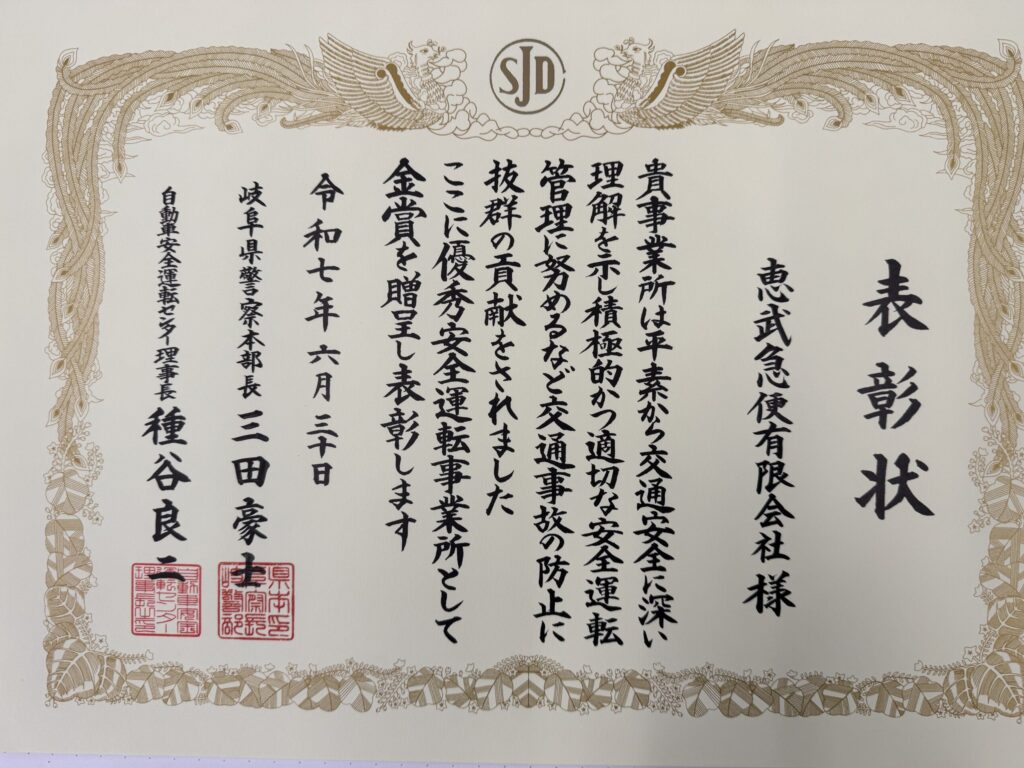 SJD
表彰状
恵武急便有限会社 様
貴事業所は平素から交通安全に深い
理解を示し積極的かつ適切な安全運転
管理に努めるなど交通事故の防止に
抜群の貢献をされました
ここに優秀安全運転事業所として
金賞を贈呈し表彰します
令和七年六月三十日
岐阜県警察本部長 三田豪士
自動車安全運転センター理事長 種谷良二